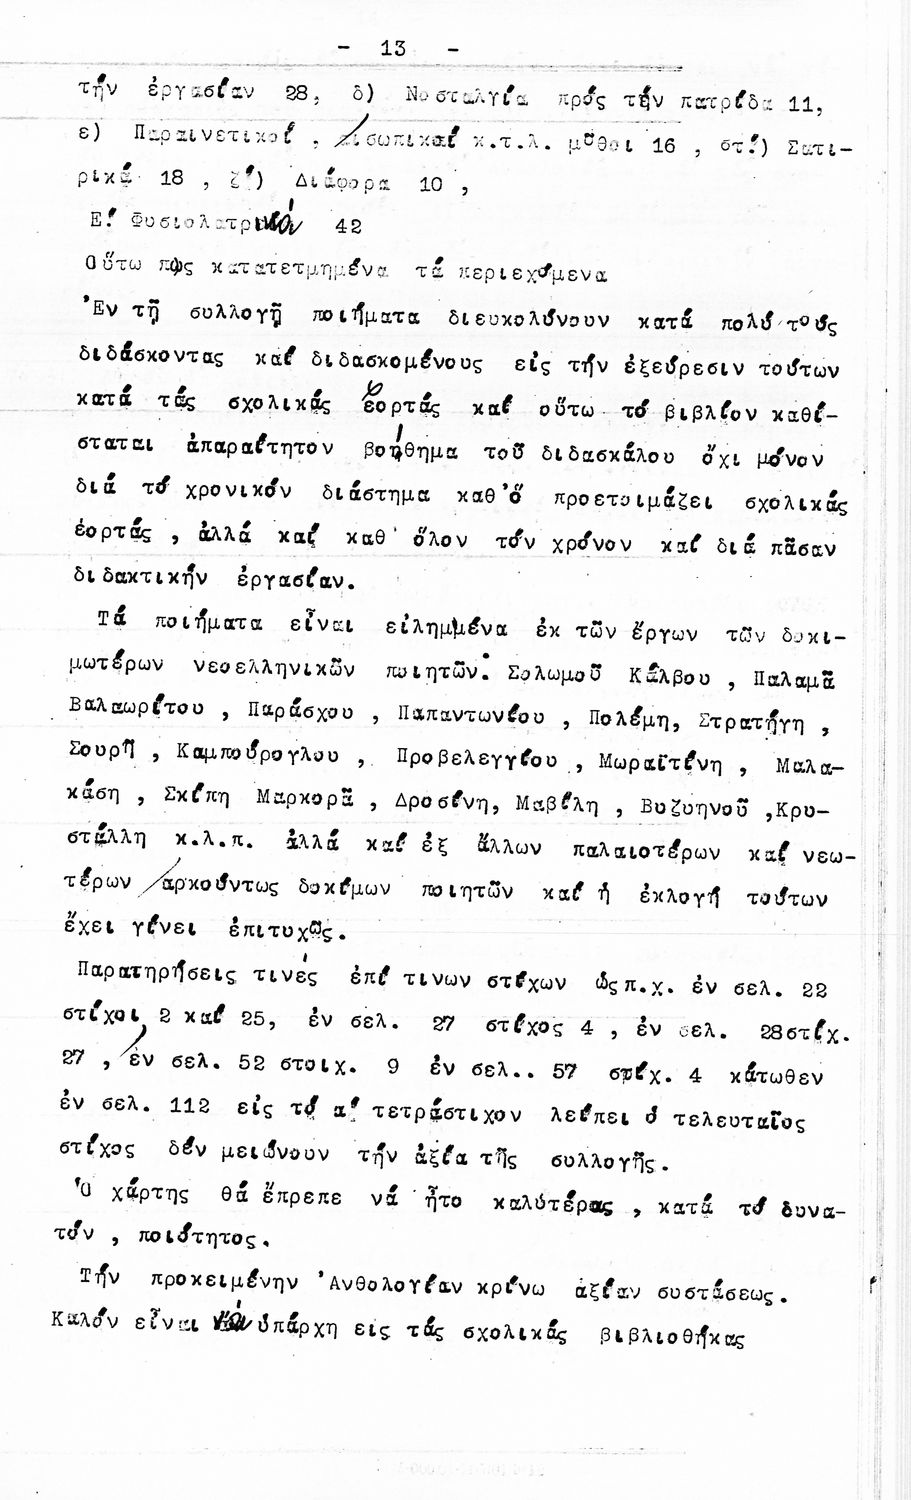 - 13 -
τήν ἐργασίαν 28, δ) Νοσταλγία πρός τήν πατρίδα 11,
ε) Παραινετικοί , αἰσωπικαί κ.τ.λ. μῦθοι 16 , στ!) Σατι-
ρικά 18 , ζ!) Διάφορα 10 ,
Ε! Φυσιολατρικά 42
Οὕτω πως κατατετμημένα τά περιεχόμενα
Ἐν τῇ συλλογῇ ποιήματα διευκολύνουν κατά πολύ τούς
διδάσκοντας καί διδασκομένους εἰς τήν ἐξεύρεσιν τούτων
κατά τάς σχολικάς ἑορτάς καί οὕτω τό βιβλίον καθί-
σταται ἀπαραίτητον βοήθημα τοῦ διδασκάλου ὄχι μόνον
διά τό χρονικόν διάστημα καθ'ὅ προετοιμάζει σχολικάς
ἑορτάς , ἀλλά καί καθ' ὅλον τόν χρόνον καί διά πᾶσαν
διδακτικήν ἐργασίαν.
Τά ποιήματα εἶναι εἰλημμένα ἐκ τῶν ἔργων τῶν δοκι-
μωτέρων νεοελληνικῶν ποιητῶν: Σολωμοῦ Κάλβου , Παλαμᾶ
Βαλαωρίτου , Παράσχου , Παπαντωνίου , Πολέμη, Στρατήγη ,
Σουρῆ , Καμπούρογλου , Προβελεγγίου , Μωραϊτίνη , Μαλα-
κάση , Σκίπη Μαρκορᾶ , Δροσίνη, Μαβίλη , Βυζυηνοῦ ,Κρυ-
στάλλη κ.λ.π. ἀλλά καί ἐξ ἄλλων παλαιοτέρων καί νεω-
τέρων ἀρκούντως δοκίμων ποιητῶν καί ἡ ἐκλογή τούτων
ἔχει γίνει ἐπιτυχῶς.
Παρατηρήσεις τινές ἐπί τινων στίχων ὡς π.χ. ἐν σελ. 22
στίχοι 2 καί 25, ἐν σελ. 27 στίχος 4 , ἐν σελ. 28στίχ.
27 , ἐν σελ. 52 στοιχ. 9 ἐν σελ.. 57 στίχ. 4 κάτωθεν
ἐν σελ. 112 εἰς τό α! τετράστιχον λείπει ὁ τελευταῖος
στίχος δέν μειώνουν τήν ἀξία τῆς συλλογῆς.
Ὁ χάρτης θά ἔπρεπε νά ἦτο καλύτέρας , κατά τό δυνα-
τόν , ποιότητος.
Τήν προκειμένην Ἀνθολογίαν κρίνω ἀξίαν συστάσεως.
Καλόν εἶναι νά ὑπάρχη εις τάς σχολικάς βιβλιοθήκας